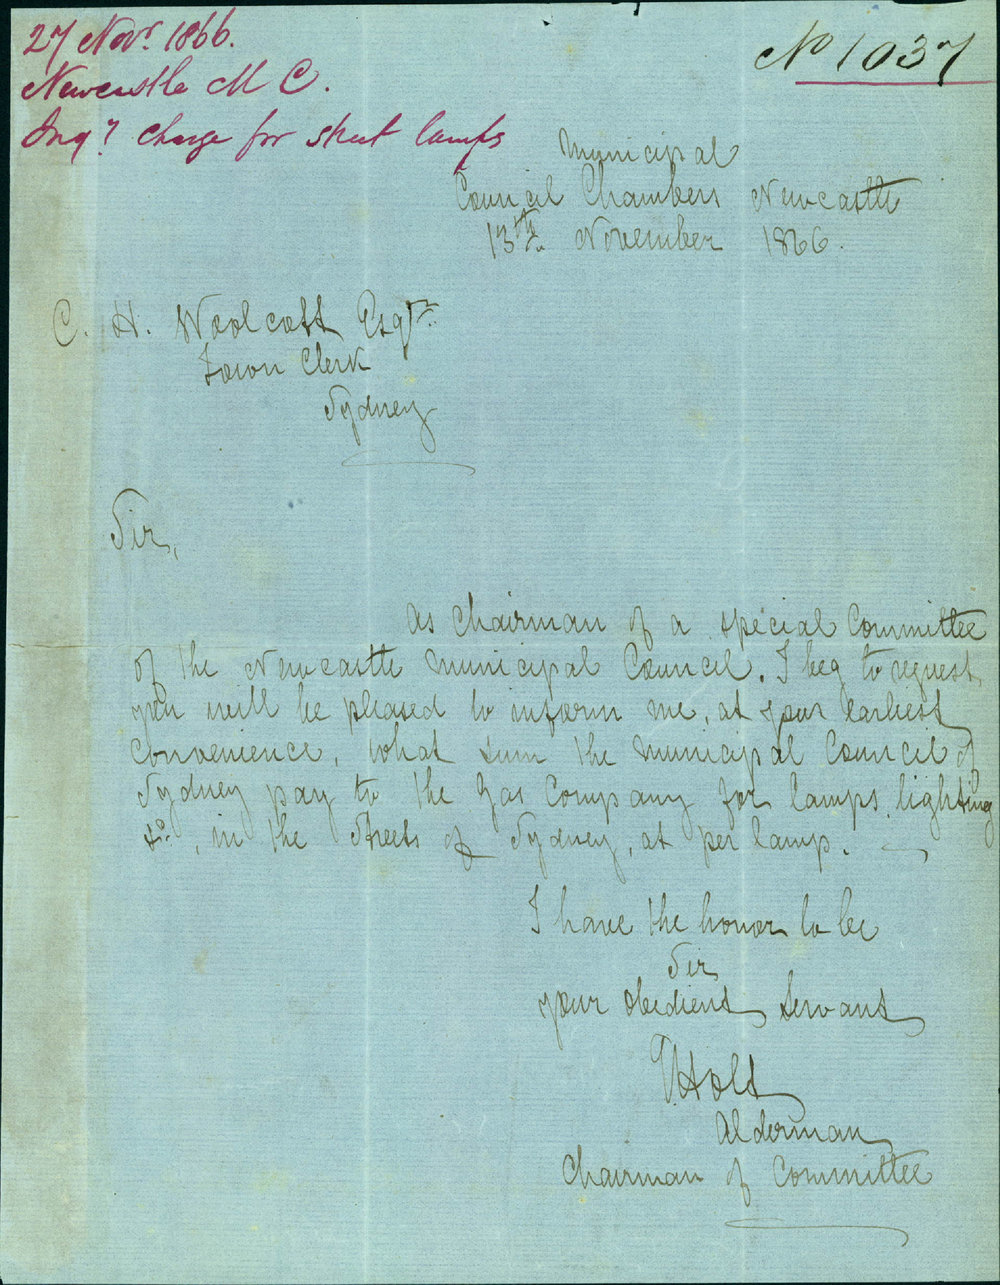 27 Novr. 1866.
Newcastle M C.
Inqg charge for street lamps
No 1037
Municipal
Council Chambers Newcastle
13th November 1866.
C. H. Woolcott Esqr.
Town Clerk
Sydney
Sir,
As Chairman of a special Committee
of the Newcastle Municipal Council. I beg to request
you will be pleased to inform me, at your earliest
Convenience, What sum the Municipal Council of
Sydney pay to the Gas Company for lamps, lighting
&c, in the Streets of Sydney, at per lamp.
I have the honor to be
Sir
your obedient Servant
Holt
Alderman
Chairman of Committee